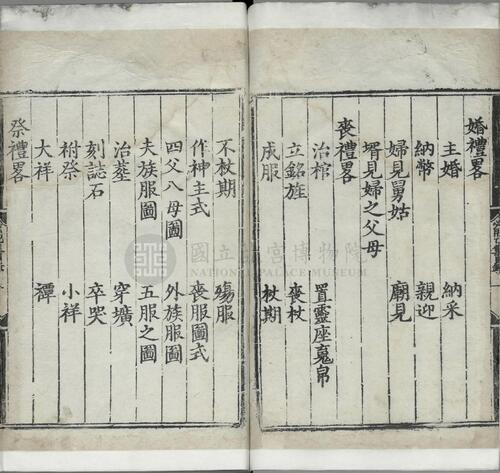 婚禮畧
主婚 納采
納幣 親迎
婦見舅姑 廟見
壻見婦之父母
喪禮畧
治棺 置靈座䰟帛
立銘旌 喪杖
成服 杖期
不杖期 殤服
作神主式 喪服圖式
四父八母圖 外族服圖
夫族服圖 五服之圖
治葬 穿壙
刻誌石 卒哭
祔祭 小祥
大祥 禫
祭禮畧
國立故宮博物院
NATIONAL PALACE MUSEUM